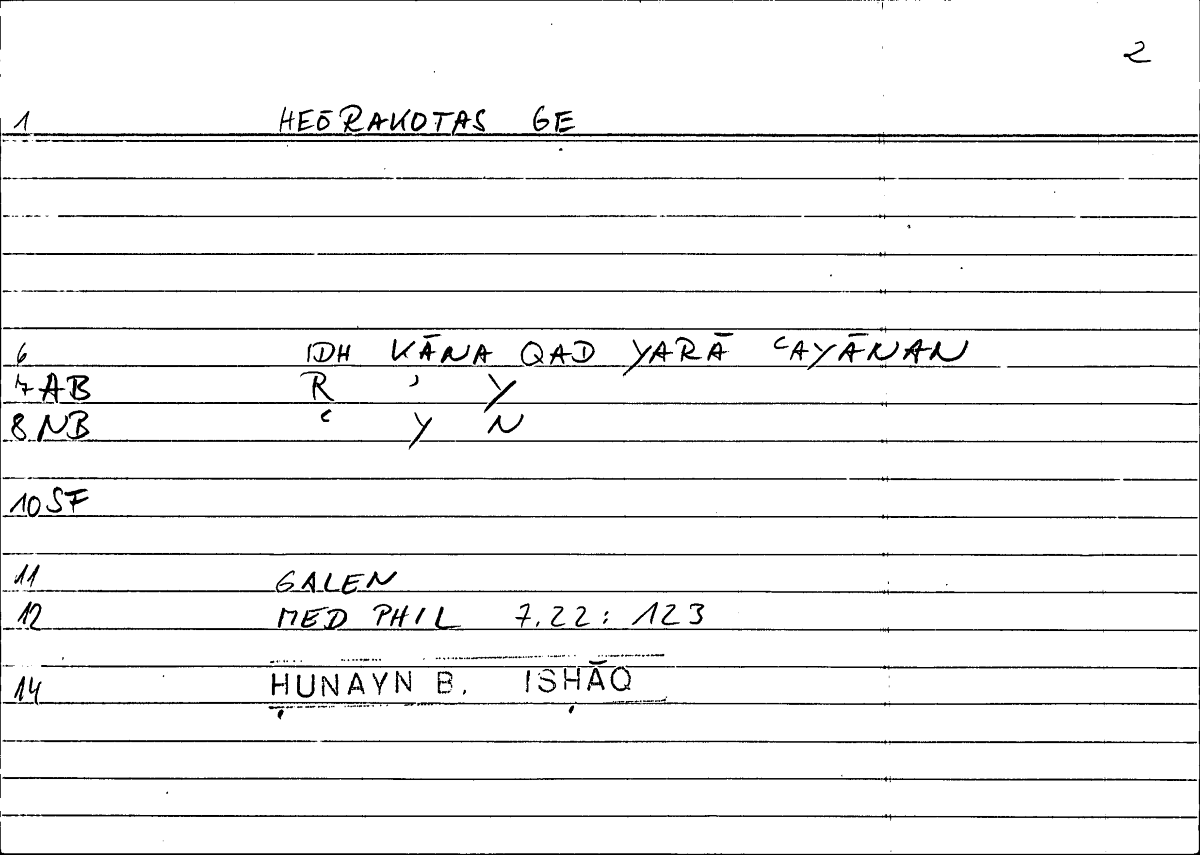 2
1 HEŌRAKOTAS GE
6 IDH KĀNA QAD YARĀ ʿAYĀNAN
7 AB R ʾ Y
8 NB ʿ Y N
10 SF
11 GALEN
12 MED PHIL 7.22: 123
14 ḤUNAYN B. ISḤĀQ